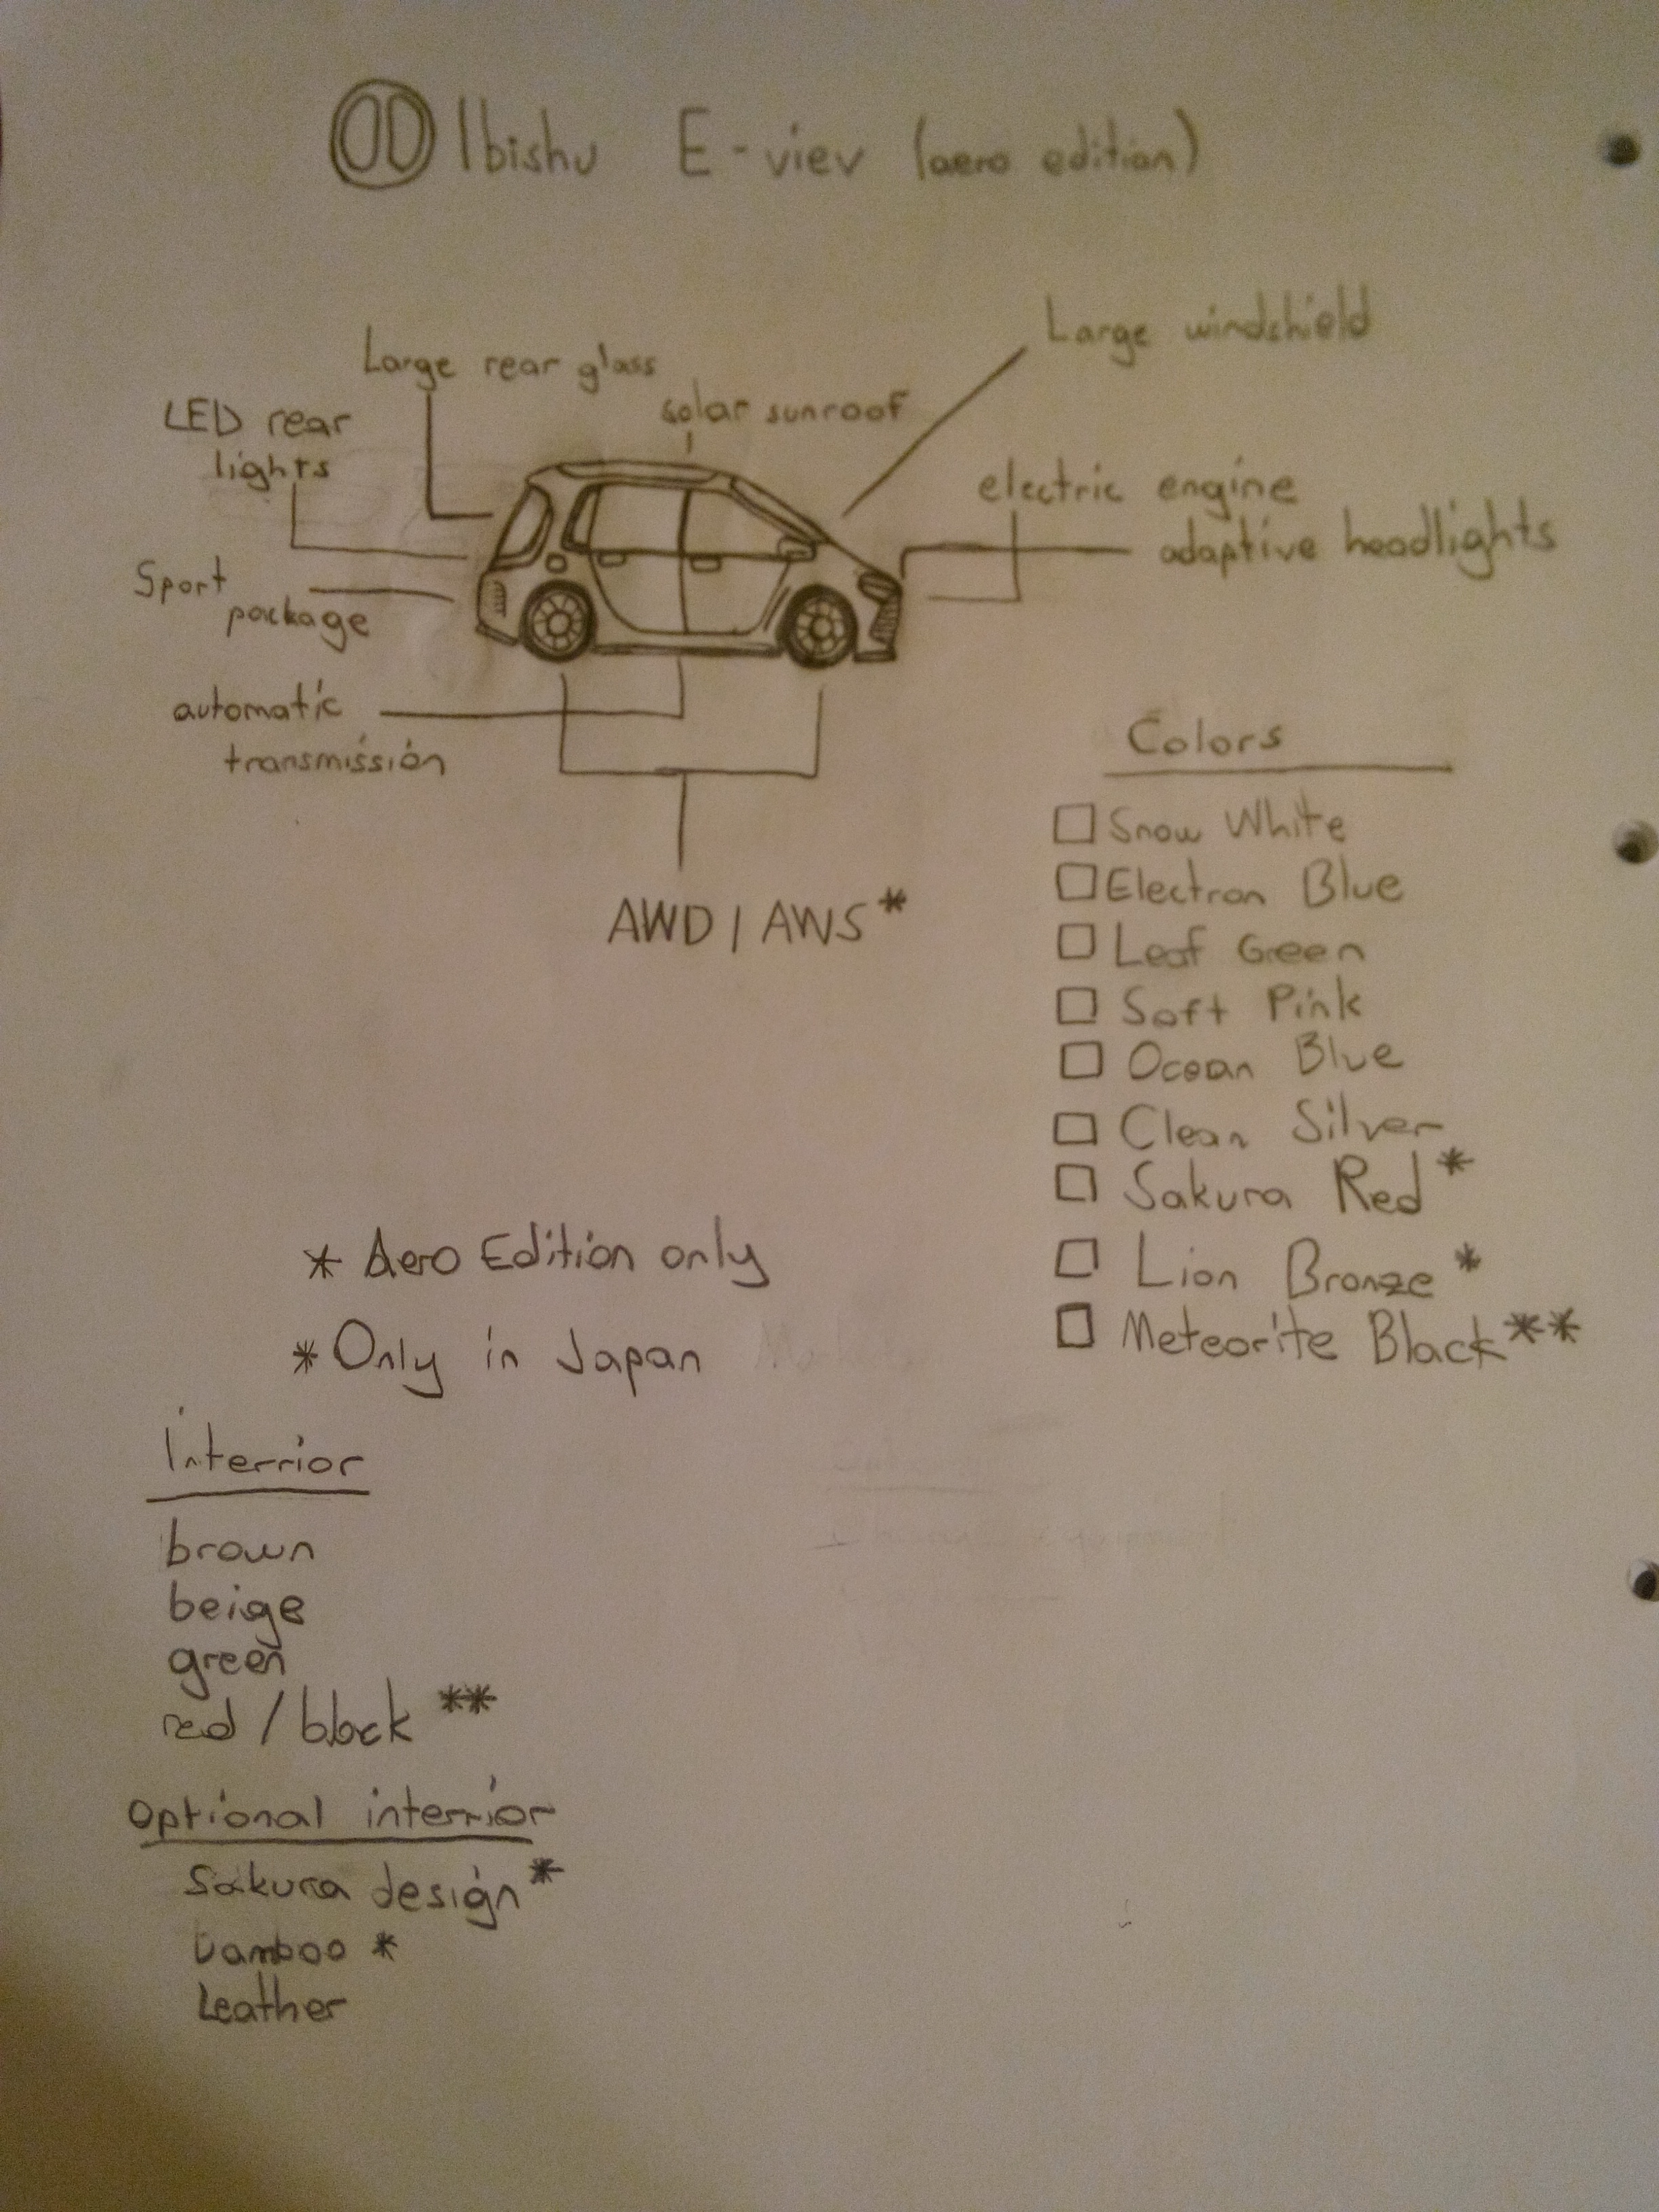 Ibishu E-viev (aero edition)
Large windshield
Large rear glass
solar sunroof
LED rear
lights
electric engine
adaptive headlights
Sport
package
automatic
transmission
AWD / AWS*
Colors
Snow White
Electron Blue
Leaf Green
Soft Pink
Ocean Blue
Clean Silver
Sakura Red*
Lion Bronze*
Meteorite Black**
* Aero Edition only
* Only in Japan
Interrior
brown
beige
green
red / black **
Optional interrior
Sakura design*
bamboo *
Leather